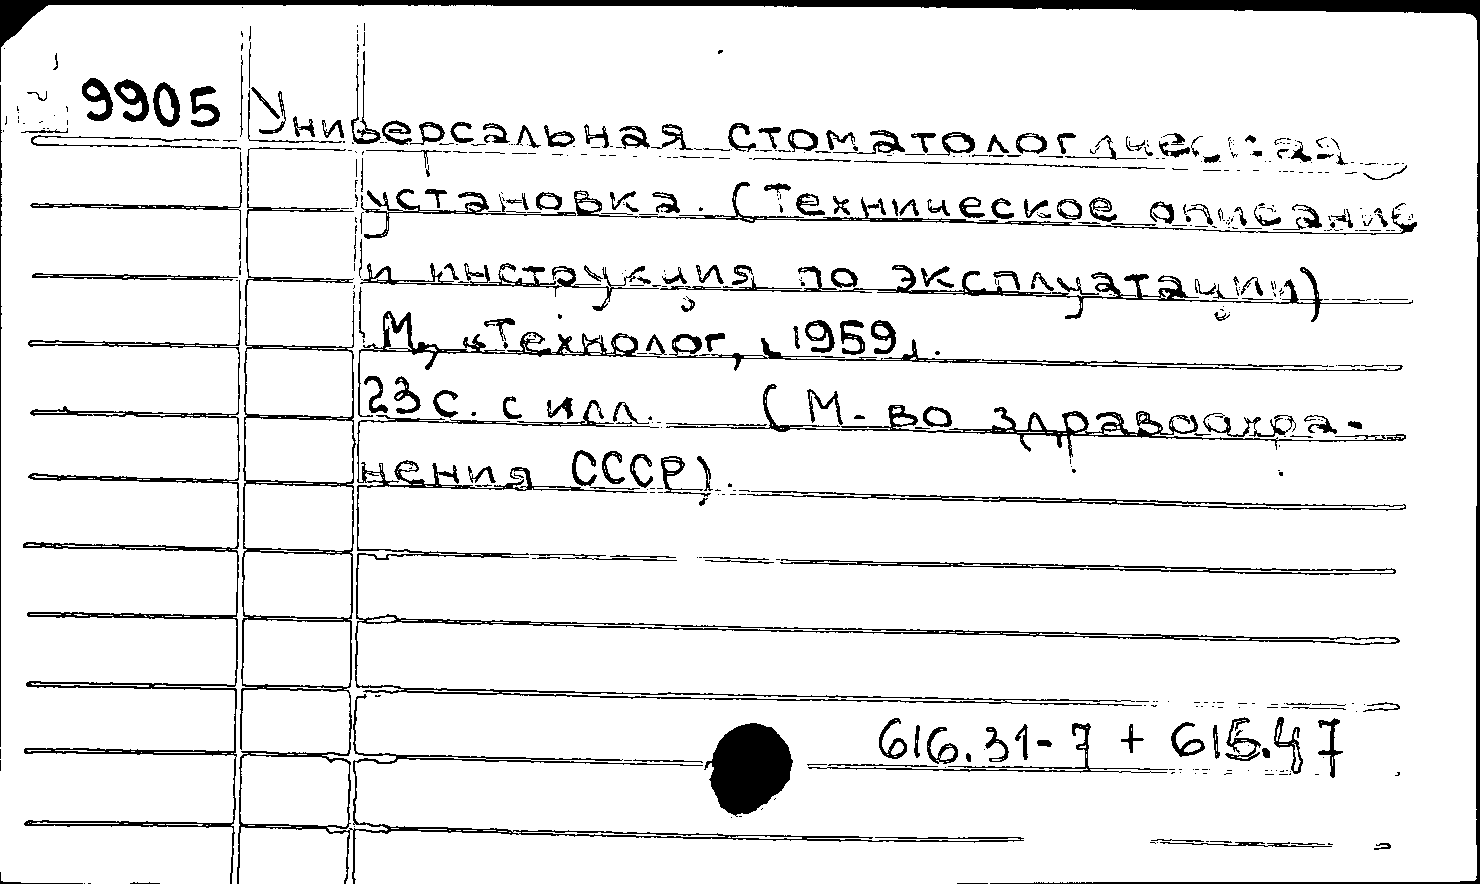 9905 Универсальная стоматологическая
установка. (Техническое описание
и инструкция по эксплуатации)
М., «Технолог, [1959].
23 с. с илл. (М-во здравоохра-
нения СССР).
616.31-7 + 615.47